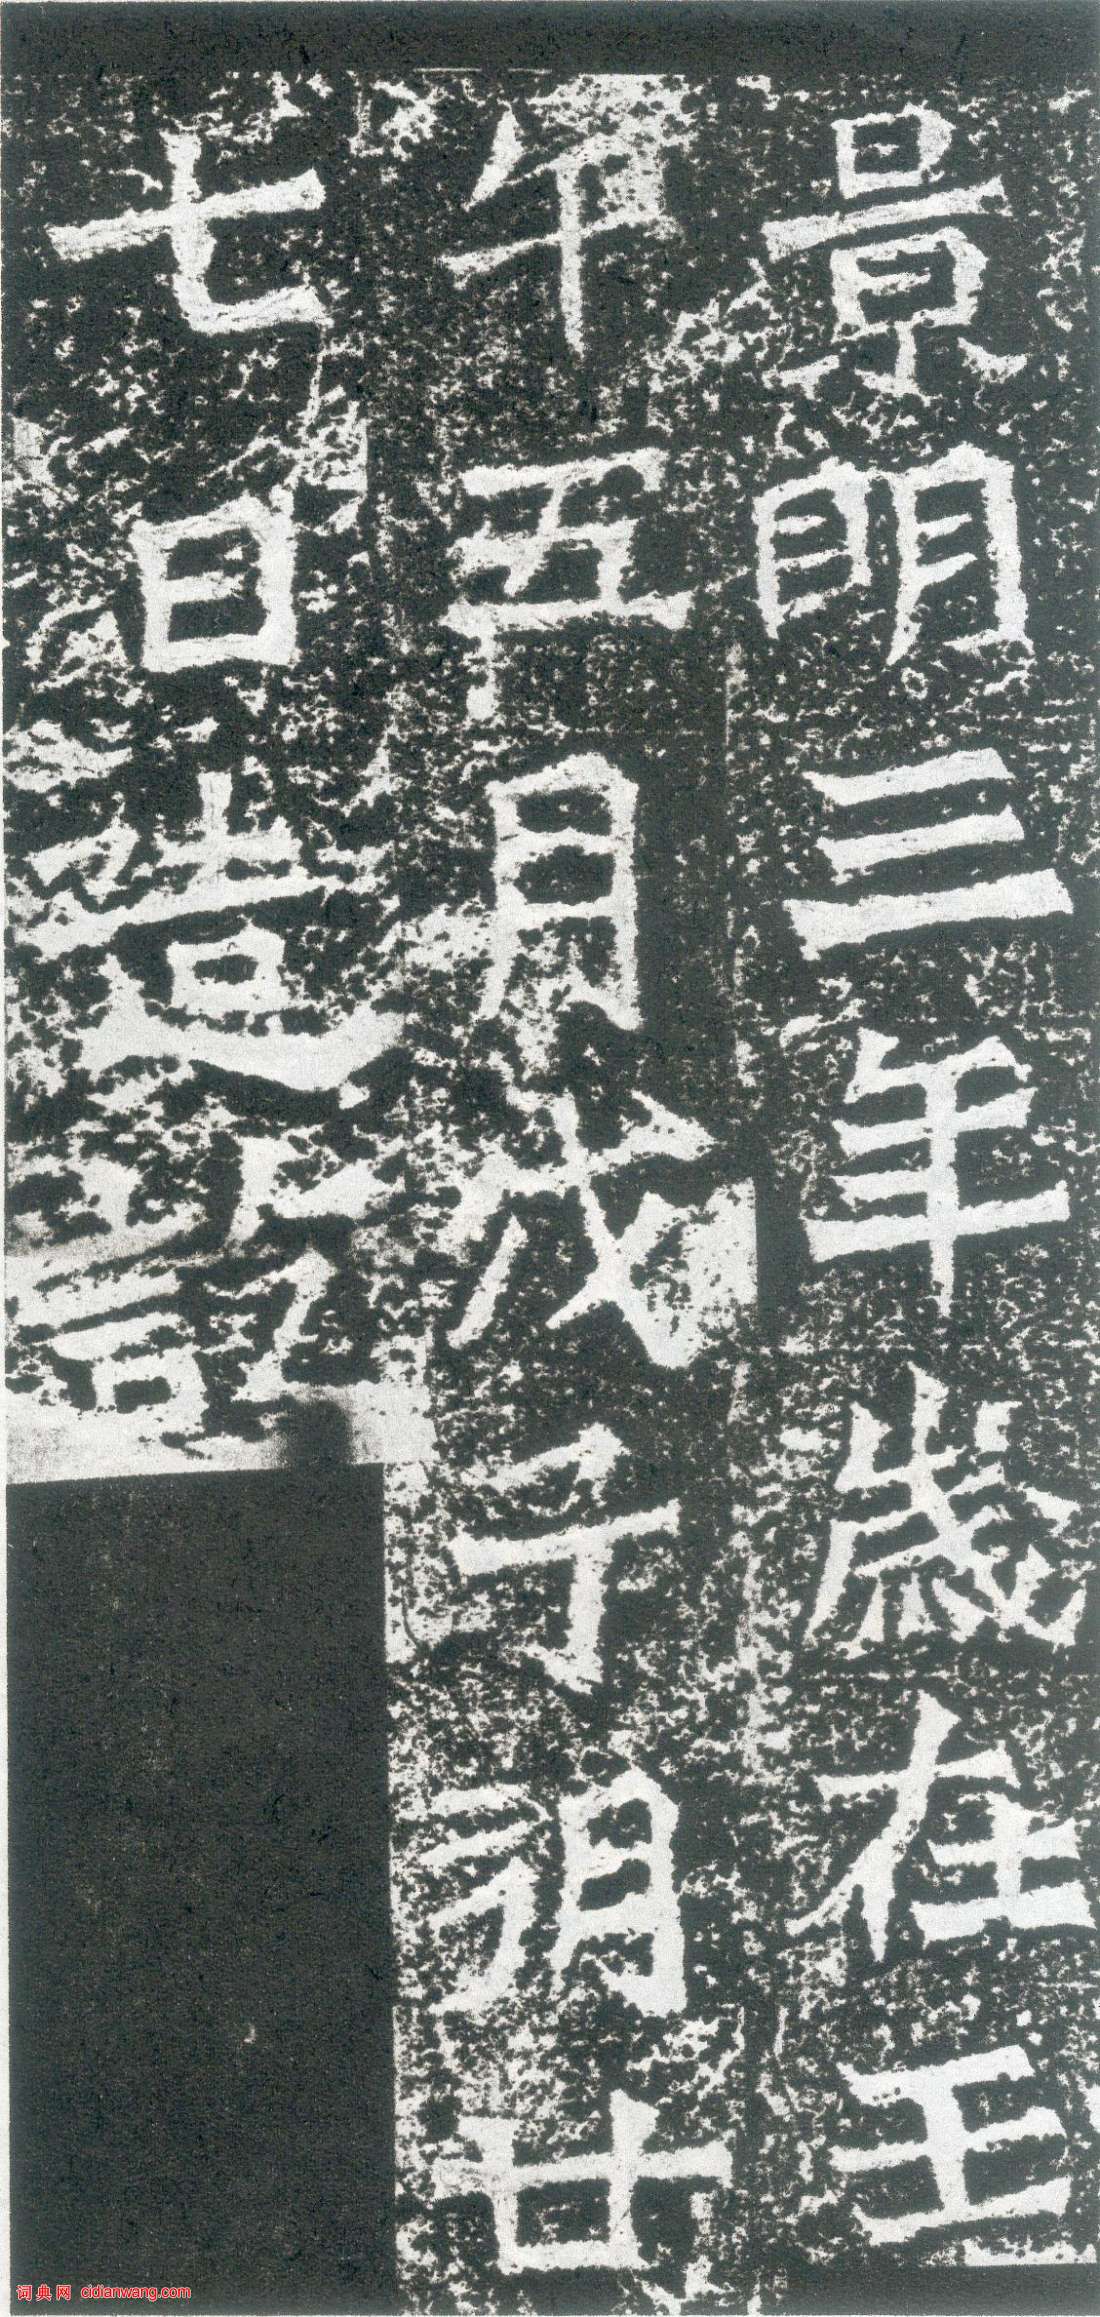 景明三年歲在壬
午五月戊子朔廿
七日造訖
词典网 cidianwang.com